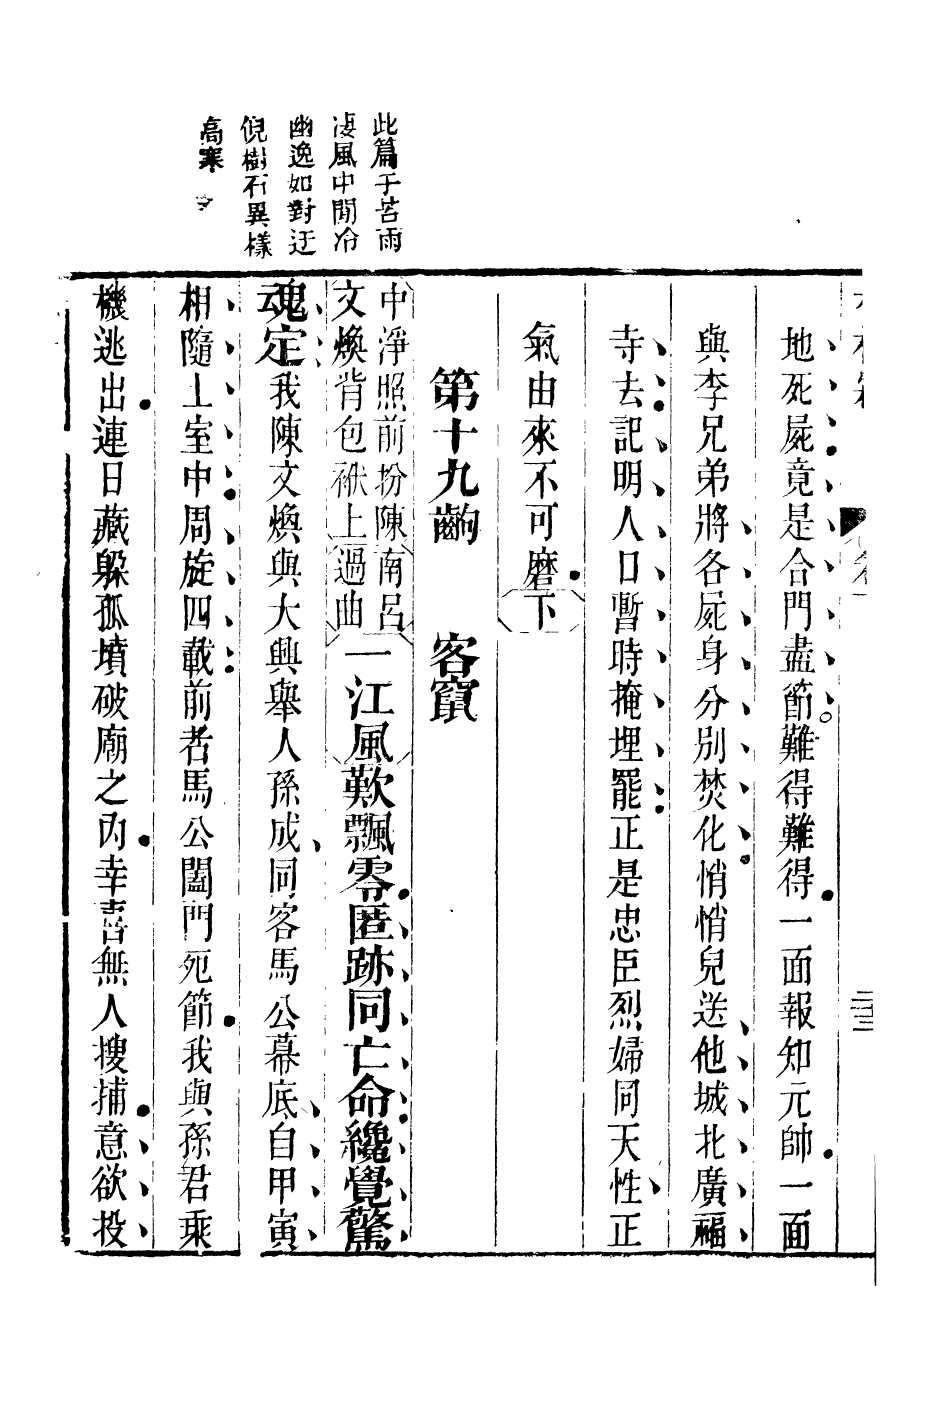 此篇于苦雨
淒風中閒冷
幽逸如對迂
倪樹石異樣
高寒
地死屍竟是合門盡節難得難得一面報知元帥一面
與李兄弟將各屍身分別焚化悄悄兒送他城北廣福
寺去記明人口暫時掩埋罷正是忠臣烈婦同天性正
氣由來不可磨下
第十九齣　客竄
中淨照前扮陳
文煥背包袱上
南呂
過曲
一江風歎飄零匿跡同亡命纔覺驚
魂定我陳文煥與大興舉人孫成同客馬公幕底自甲寅
相隨上室中周旋四載前者馬公闔門死節我與孫君乘
機逃出連日藏躲孤墳破廟之內幸喜無人搜捕意欲投
三十三